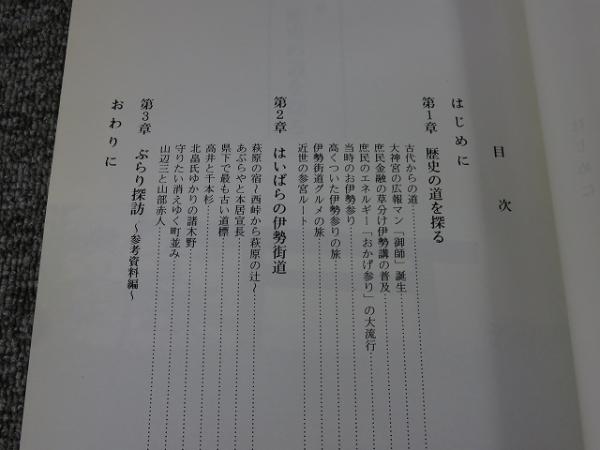 目次
はじめに
第1章 歴史の道を探る
古代からの道
大神宮の広報マン「御師」誕生
庶民金融の草分け伊勢講の普及
庶民のエネルギー「おかげ参り」の大流行
当時のお伊勢参り
高くついた伊勢参りの旅
伊勢街道グルメの旅
近世の参宮ルート
第2章 はいばらの伊勢街道
萩原の宿～西峠から萩原の辻～
あぶらやと本居宣長
県下で最も古い道標
高井と千本杉
北畠氏ゆかりの諸木野
守りたい消えゆく町並み
山辺三と山部赤人
第3章 ぶらり探訪 ～参考資料編～
おわりに